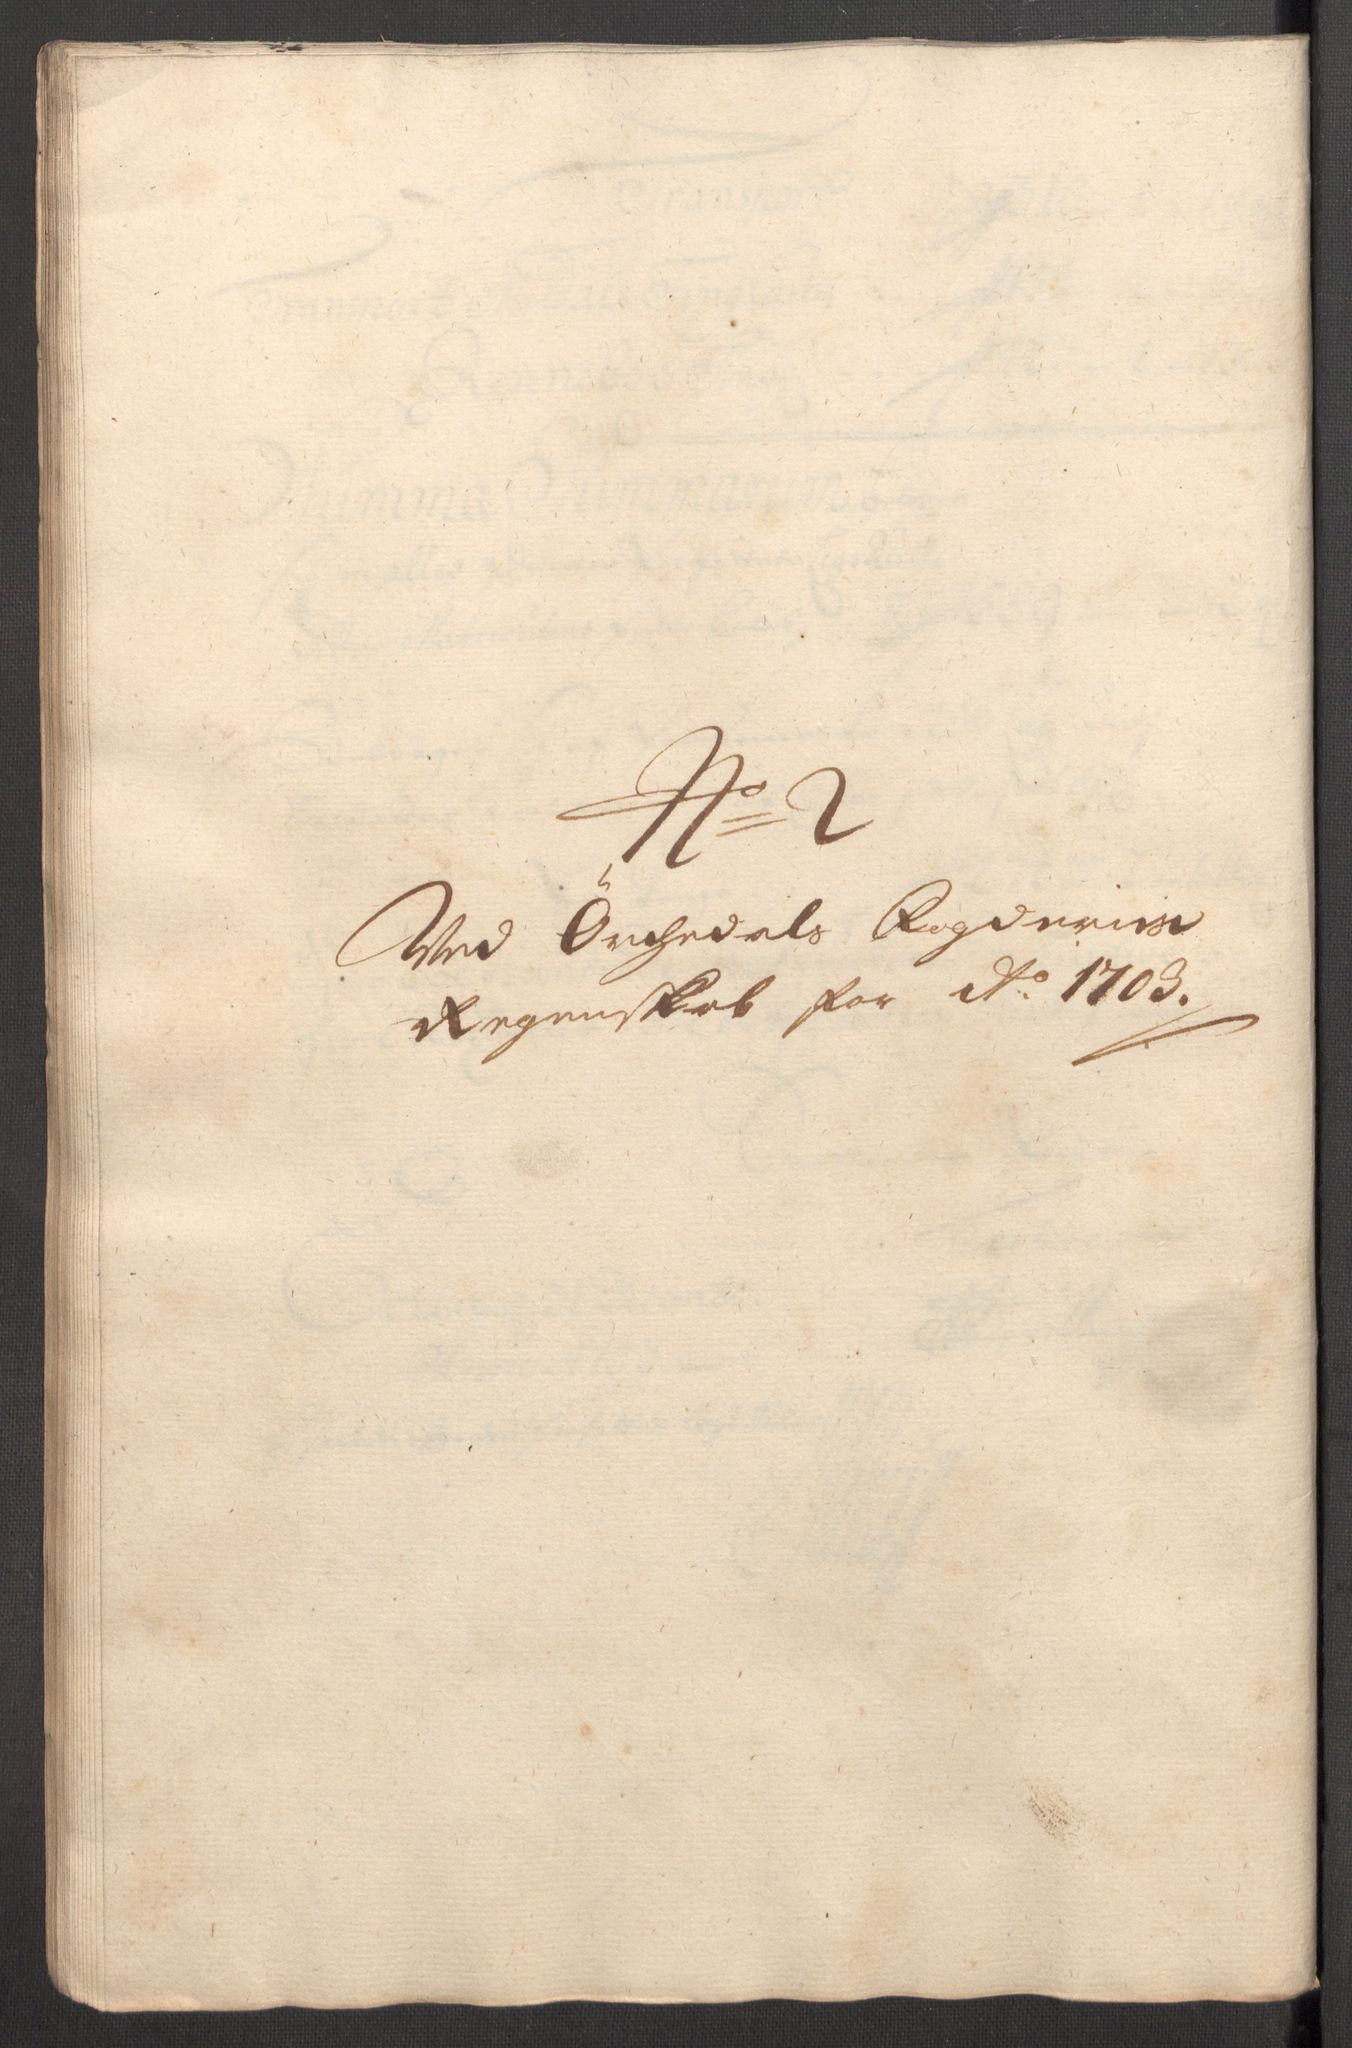 No 2
Ved Örchedals Fogderies
Regenskab for Ao 1703.